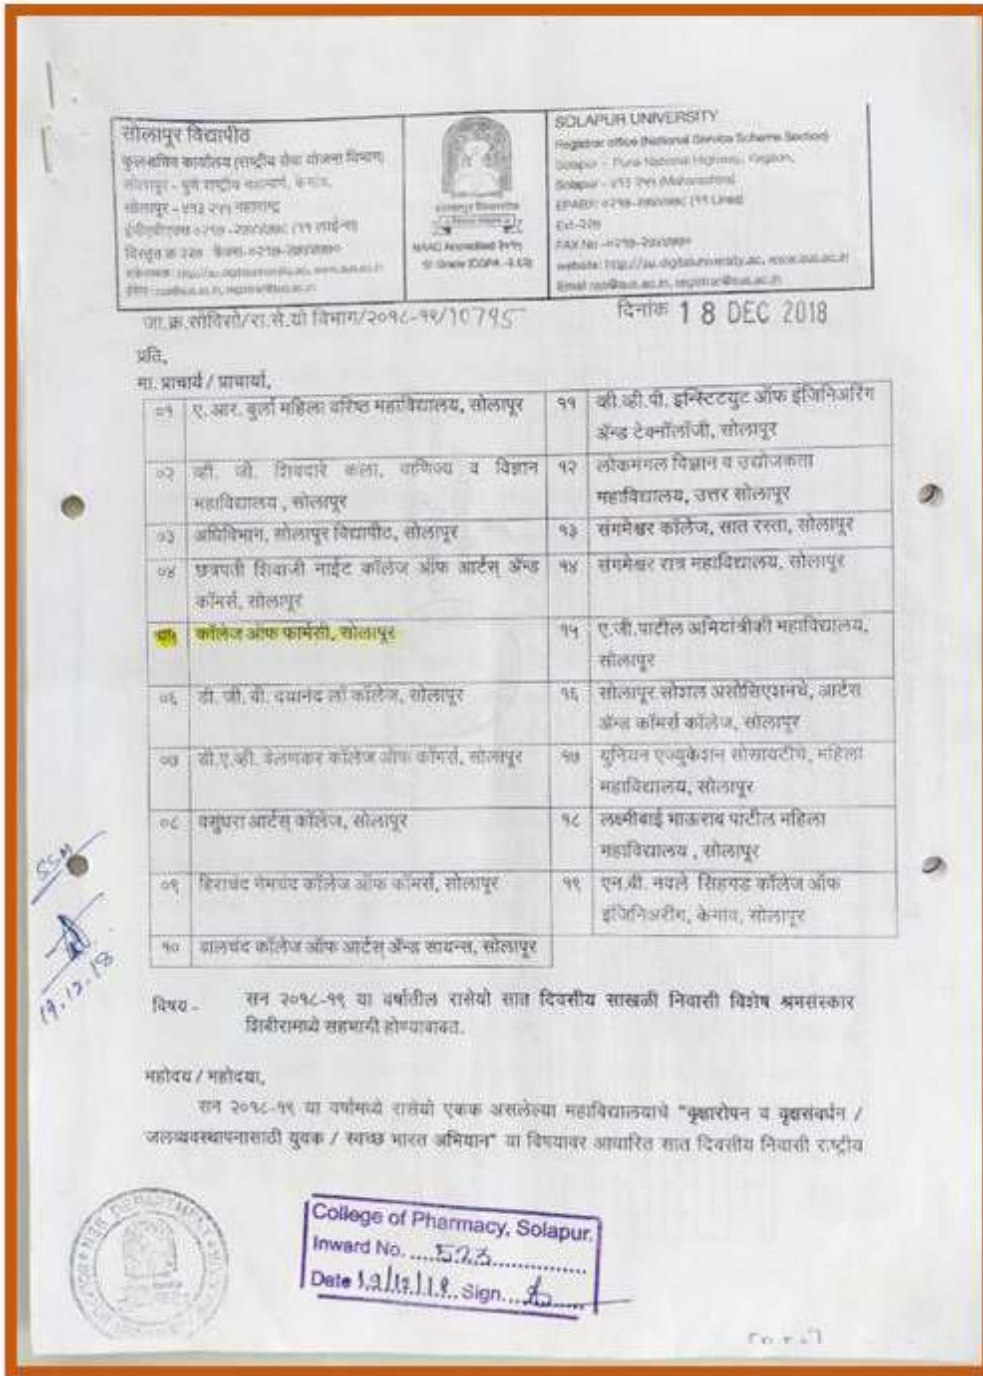 सोलापूर विद्यापीठ
कुलसचिव कार्यालय (राष्ट्रीय सेवा योजना विभाग)
सोलापूर - पुणे राष्ट्रीय महामार्ग, केगाव,
सोलापूर - ४१३ २५५ महाराष्ट्र
NAAC Accredited २०१५
'B' Grade (CGPA -2.62)
SOLAPUR UNIVERSITY
Registrar office (National Service Scheme Section)
Solapur - Pune National Highway, Kegaon,
Solapur - ४१३ २५५ (Maharashtra)
Ext-२२७
website: http://su.digitaluniversity.ac, www.sus.ac.in
Email nss@sus.ac.in, registrar@sus.ac.in
जा.क्र.सोविसो/रा.से.यो विभाग/२०१८-१९/10795
दिनांक 18 DEC 2018
प्रति,
मा. प्राचार्य / प्राचार्या,
०१ ए. आर. बुर्ला महिला वरिष्ठ महाविद्यालय, सोलापूर
११ व्ही.व्ही.पी. इन्स्टिटयुट ऑफ इंजिनिअरिंग
ॲन्ड टेक्नॉलॉजी, सोलापूर
०२ व्ही. जी. शिवदारे कला, वाणिज्य व विज्ञान
महाविद्यालय , सोलापूर
१२ लोकमंगल विज्ञान व उद्योजकता
महाविद्यालय, उत्तर सोलापूर
०३ अधिविभाग, सोलापूर विद्यापीठ, सोलापूर
१३ संगमेश्वर कॉलेज, सात रस्ता, सोलापूर
०४ छत्रपती शिवाजी नाईट कॉलेज ऑफ आर्टस् ॲन्ड
कॉमर्स, सोलापूर
१४ संगमेश्वर रात्र महाविद्यालय, सोलापूर
०५ कॉलेज ऑफ फार्मसी, सोलापूर
१५ ए.जी.पाटील अभियांत्रीकी महाविद्यालय,
सोलापूर
०६ डी. जी. बी. दयानंद लॉ कॉलेज, सोलापूर
१६ सोलापूर सोशल असोसिएशनचे, आर्टस
ॲन्ड कॉमर्स कॉलेज, सोलापूर
०७ डी.ए.व्ही. वेलणकर कॉलेज ऑफ कॉमर्स, सोलापूर
१७ युनियन एज्युकेशन सोसायटीचे, महिला
महाविद्यालय, सोलापूर
०८ वसुंधरा आर्टस् कॉलेज, सोलापूर
१८ लक्ष्मीबाई भाऊराव पाटील महिला
महाविद्यालय , सोलापूर
०९ हिराचंद नेमचंद कॉलेज ऑफ कॉमर्स, सोलापूर
१९ एन.बी. नवले सिंहगड कॉलेज ऑफ
इंजिनिअरींग, केगांव, सोलापूर
१० वालचंद कॉलेज ऑफ आर्टस् ॲन्ड सायन्स, सोलापूर
SSM
19.12.18
विषय - सन २०१८-१९ या वर्षातील रासेयो सात दिवसीय साखळी निवासी विशेष श्रमसंस्कार
शिबीरामध्ये सहभागी होण्याबाबत.
महोदय / महोदया,
सन २०१८-१९ या वर्षामध्ये रासेयो एकक असलेल्या महाविद्यालयाचे "वृक्षारोपन व वृक्षसंवर्धन /
जलव्यवस्थापनासाठी युवक / स्वच्छ भारत अभियान" या विषयावर आधारित सात दिवसीय निवासी राष्ट्रीय
College of Pharmacy, Solapur.
Inward No. ....523..............
Date 19/12/18. Sign..........